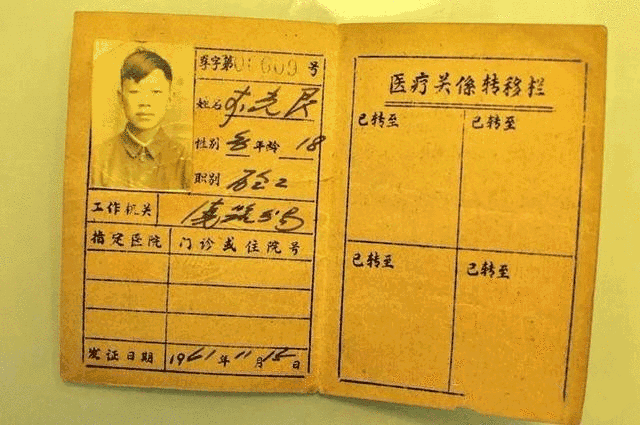 字第00609号
姓名
性别 男 年龄 18
职别
工作机关
指定医院 门诊或住院号
发证日期 1961年11月15日
医疗关係转移栏
已转至 已转至
已转至 已转至